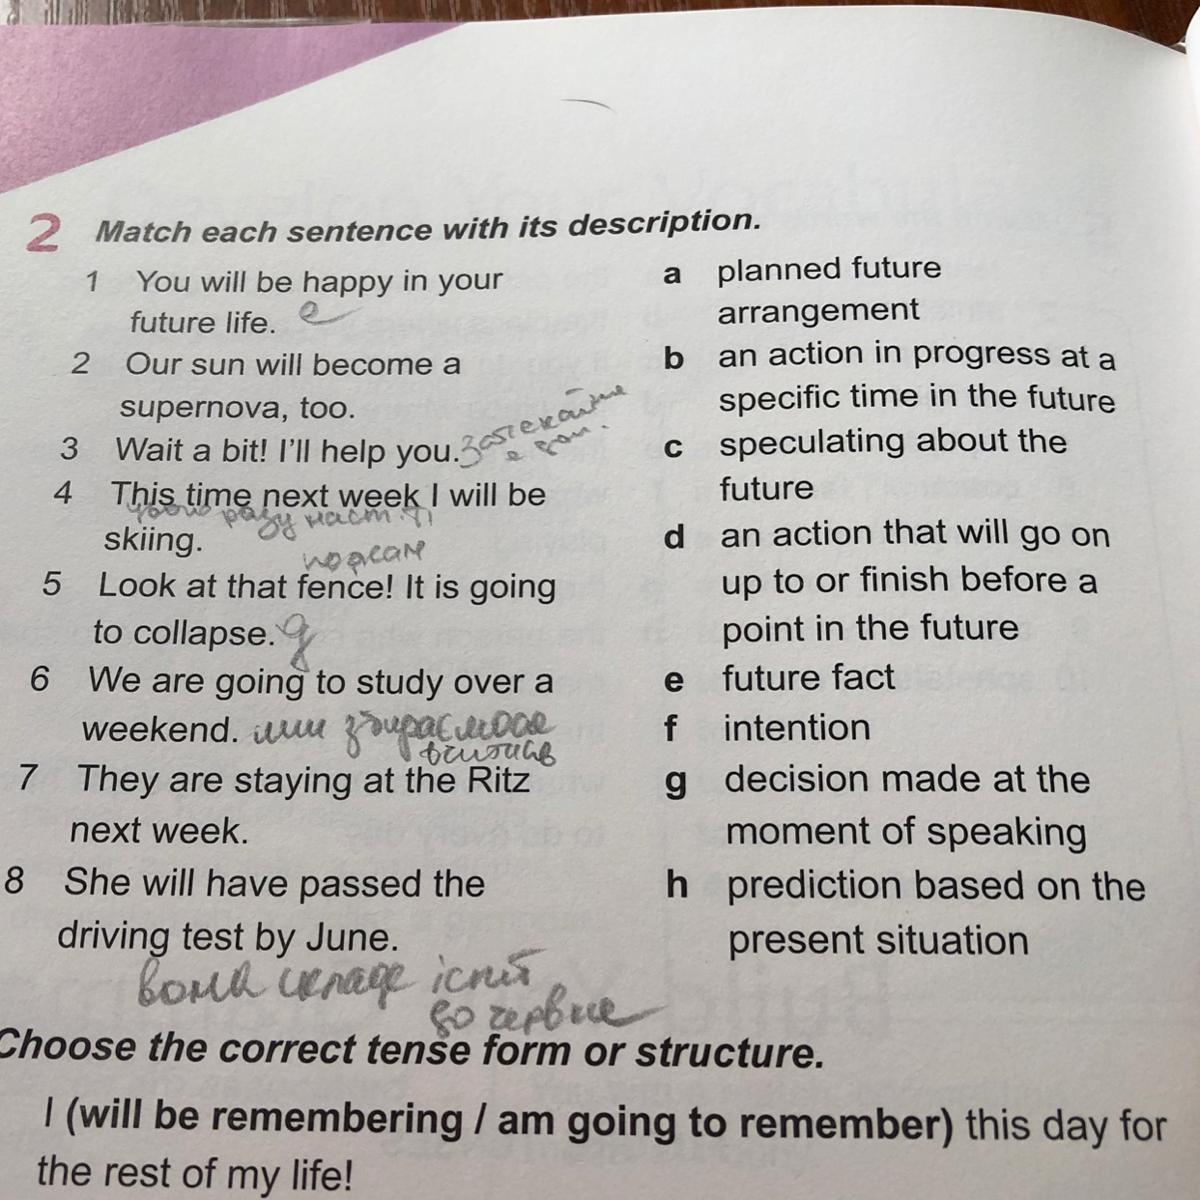 2 Match each sentence with its description.
1 You will be happy in your
future life. e
2 Our sun will become a
supernova, too.
3 Wait a bit! I'll help you.
4 This time next week I will be
skiing.
5 Look at that fence! It is going
to collapse. g
6 We are going to study over a
weekend. ми збираємося
7 They are staying at the Ritz
next week.
8 She will have passed the
driving test by June.
вона складе іспит
до червня
a planned future
arrangement
b an action in progress at a
specific time in the future
c speculating about the
future
d an action that will go on
up to or finish before a
point in the future
e future fact
f intention
g decision made at the
moment of speaking
h prediction based on the
present situation
Choose the correct tense form or structure.
I (will be remembering / am going to remember) this day for
the rest of my life!